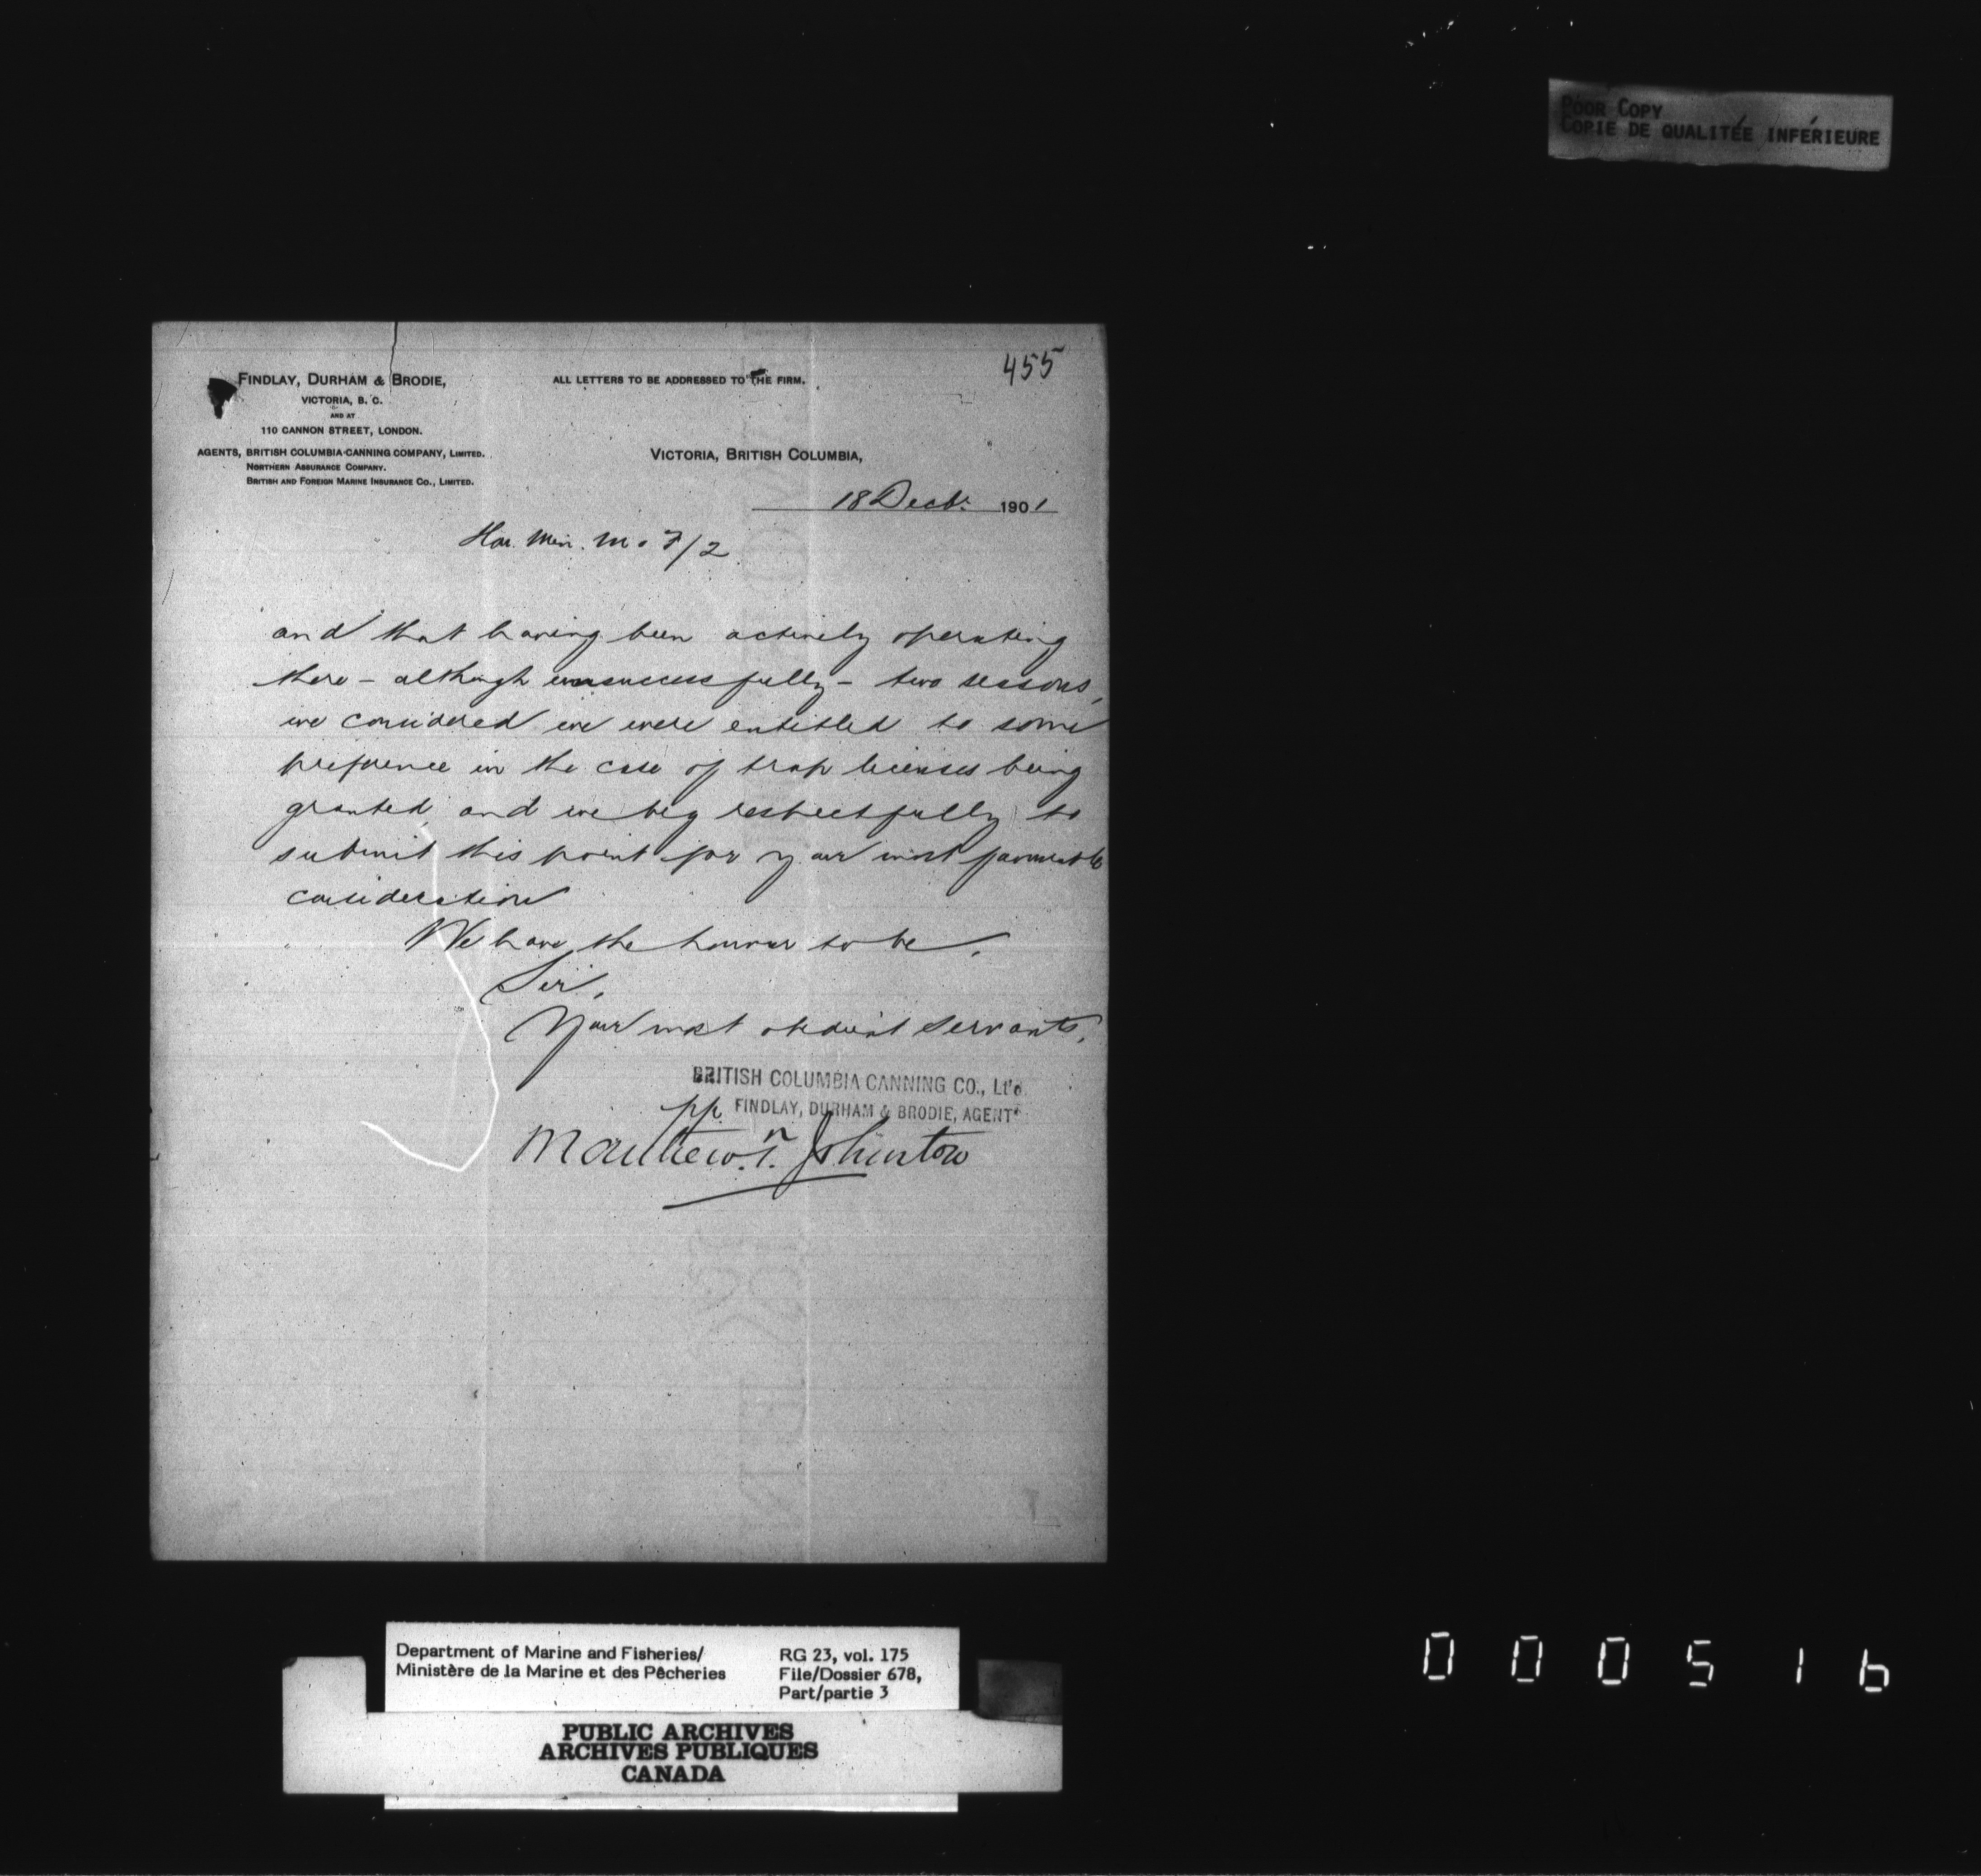 POOR COPY
COPIE DE QUALITÉE INFÉRIEURE
455
FINDLAY, DURHAM & BRODIE,
VICTORIA, B. C.
AND AT
110 CANNON STREET, LONDON.
AGENTS, BRITISH COLUMBIA CANNING COMPANY, LIMITED.
NORTHERN ASSURANCE COMPANY.
BRITISH AND FOREIGN MARINE INSURANCE CO., LIMITED.
ALL LETTERS TO BE ADDRESSED TO THE FIRM.
VICTORIA, BRITISH COLUMBIA,
18 Decbr. 1901
Hon. Min. M & F/2
and that having been actively operating
there – although unsuccessfully – two seasons,
we considered we were entitled to some
preference in the case of trap licenses being
granted, and we beg respectfully to
submit this point for your most favourable
consideration
We have the honour to be,
Sir,
Your most obedient servants,
BRITISH COLUMBIA CANNING CO., Lt'd
pp. FINDLAY, DURHAM & BRODIE, AGENTS
Matthew T. Johnston
Department of Marine and Fisheries/
Ministère de la Marine et des Pêcheries
RG 23, vol. 175
File/Dossier 678,
Part/partie 3
PUBLIC ARCHIVES
ARCHIVES PUBLIQUES
CANADA
000516